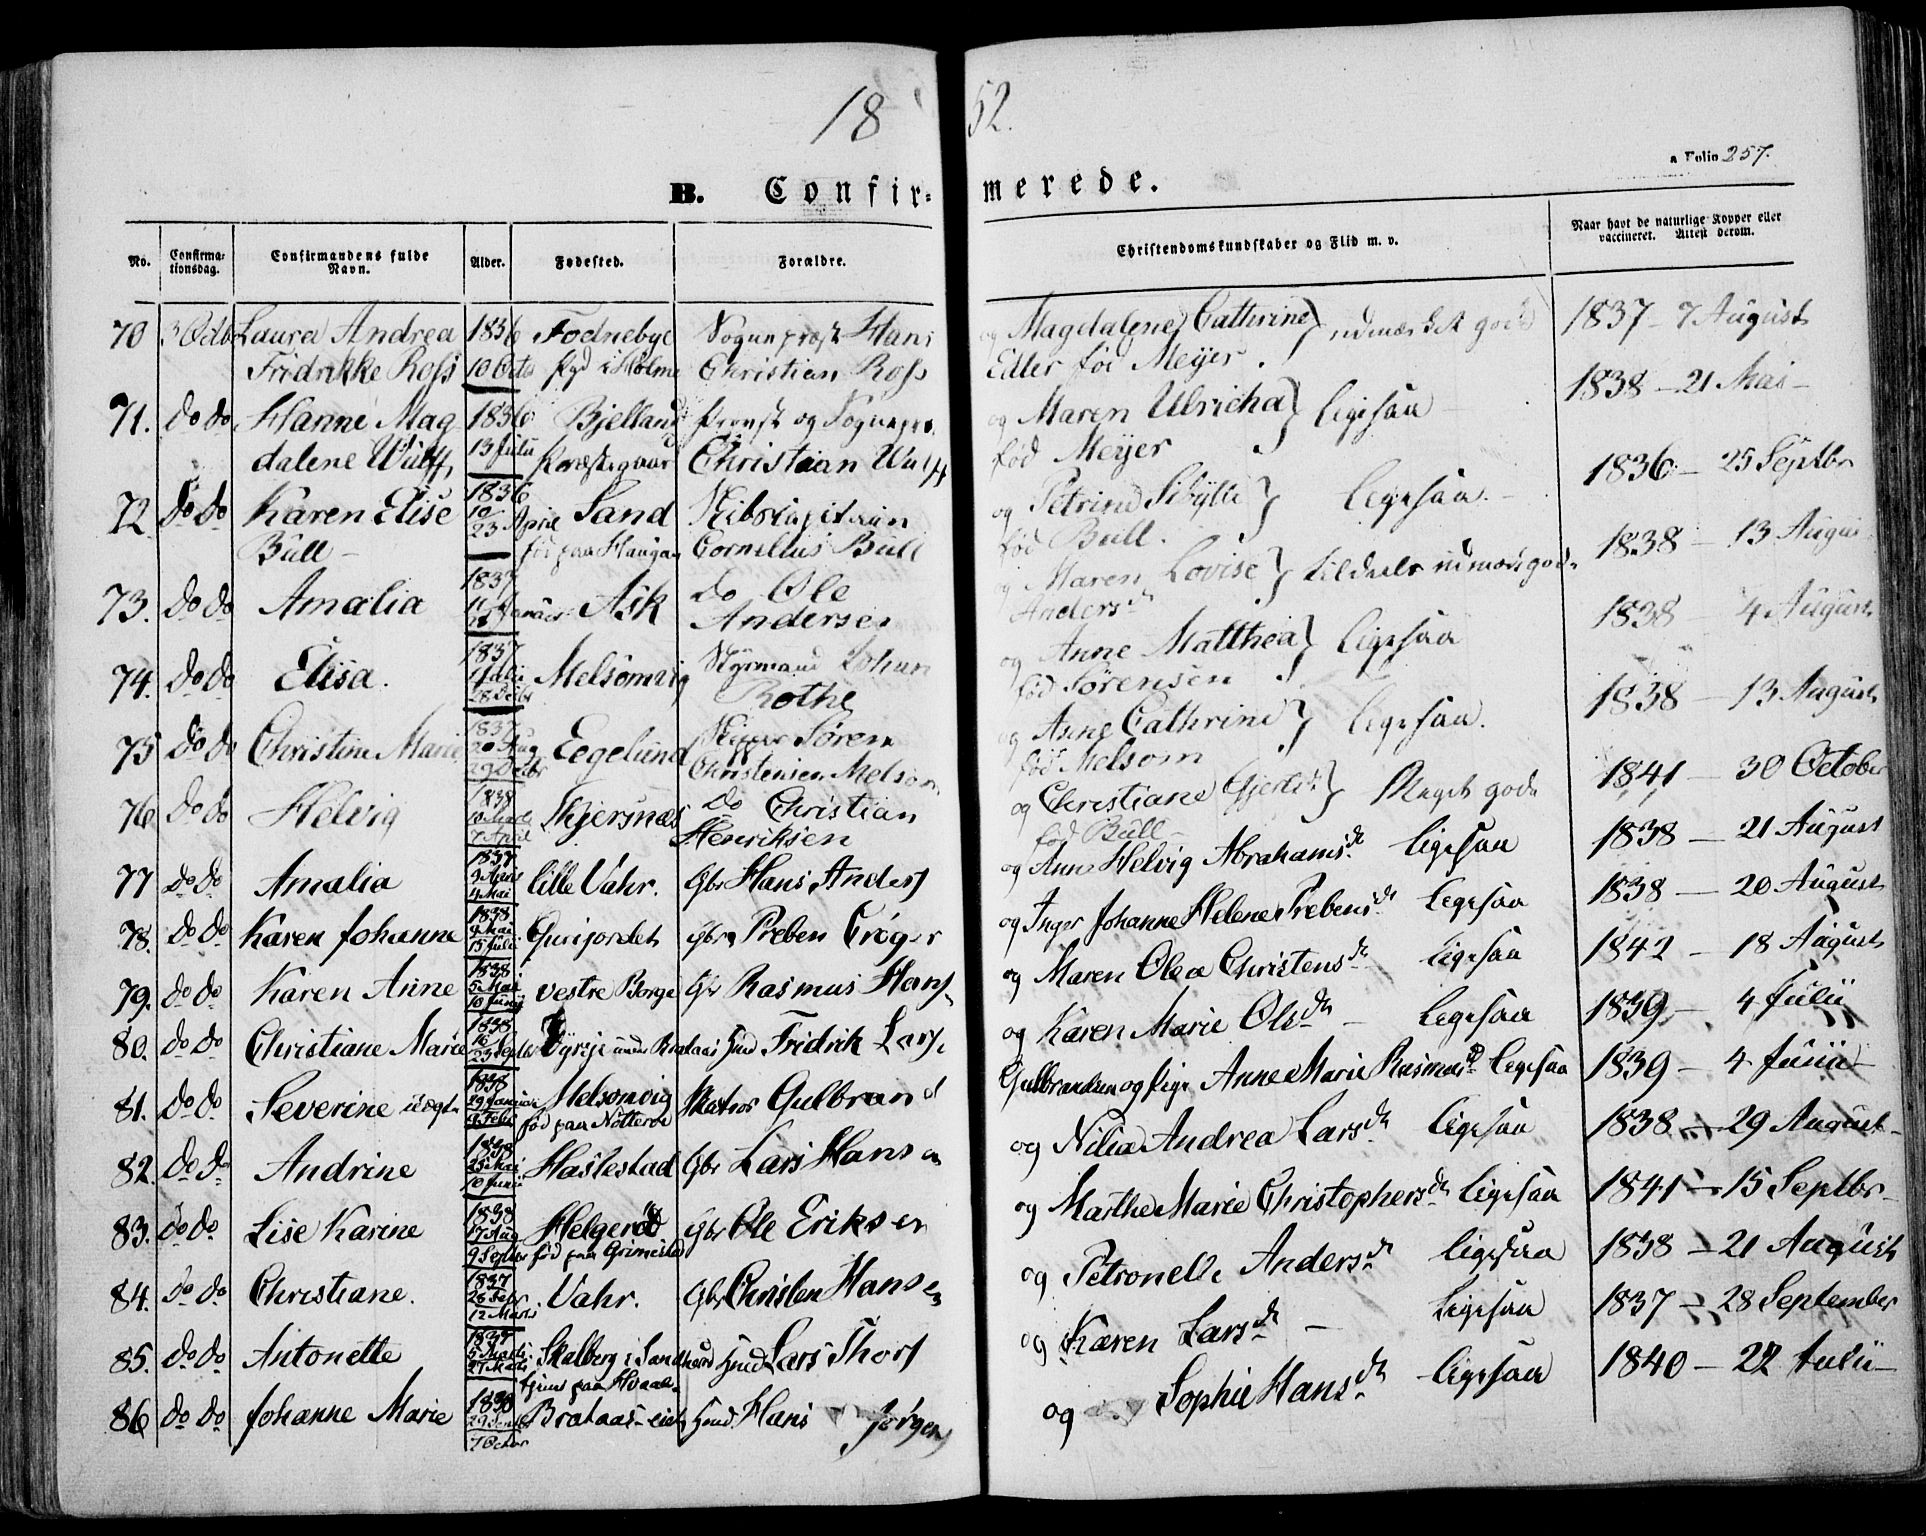 18 52.
a Folio 257.
B. Confir- merede.
No. Confirmationsdag. Confirmandens fulde Navn. Alder. Fødested. Forældre. Christendomskundskaber og Flid m. v. Naar havt de naturlige Kopper eller vaccineret. Attest derom.
70 3 Octb Laura Andrea 1836 Fodnebye Sogneprest Hans og Magdalene Cathrine } udmærket god 1837 - 7 August
Fridrikke Ross 10 Octb i Holme Christian Ross Edler fød Meyer.
71. Do Do Hanne Mag 1836 Bjelland Provst og Sognepr. og Maren Ulricha } ligesaa 1838 - 21 Mai -
dalene Wulff, 13 Julii Præstegaard Christian Wulff fød Meyer
72 Do Do Karen Elise 1836 10/23 April Sand Skibscapitain og Petrine Sibylle } ligesaa. 1836 - 25 Septbr
Bull - fød paa Haugan Cornelius Bull fød Bull.
73. Do Do Amalia 1837 Ask Do Ole og Maren Lovise } tildeels udmærk god 1838 - 13 August
Andersen Andersdt
74. Do Do Elisa. 1837 Melsomvig Styrmand Johan og Anne Matthea } ligesaa 1838 - 4 August
Rothe fød Sørensen
75 Do Do Christine Marie 1837 20 Aug Eegelund Skipper Søren og Anne Cathrine } ligesaa. 1838 - 13 August
Christensen Melsom fød Melsom
76 Do Do Helvig 1838 Skjersnæs Do Christian og Christiane Gjertdt } Meget god 1841 - 30 October
7 April Henriksen fød Bull -
77 Do Do Amalia 1838 lille Vahr. Gbr Hans Anders og Anne Helvig Abrahamsdt ligesaa 1838 - 21 August
78. Do Do Karen Johanne 1838 4 Mai 15 Juli Gurijordet Gbr Preben Crøger og Inger Johanne Helene Prebensdt ligesaa 1838 - 20 August
79. Do Do Karen Anne 1838 5 Mai 10 Juni vestre Borge Gbr Rasmus Hans og Maren Olea Christensdt ligesaa 1842 - 18 August
80. Do Do Christiane Marie 1838 23 Septbr under Brataas Hmd Fridrik Lars. og Karen Marie Olsdt - ligesaa 1839 - 4 Julii
81. Do Do Severine uægte 1838 29 Januar Melsomvig Matros Gulbrand Gulbrandsen og Pige Anne Marie Rasmusdt ligesaa 1839 - 4 Junii -
fød paa Nøtterøe
82. Do Do Andrine 1838 25 Mai 10 Juni Haslestad Gbr Lars Hansen og Nilia Andrea Larsdt ligesaa 1838 - 29 August -
83. Do Do Lise Karine 1838 17 Aug 9 Septbr Helgerød Gbr Ole Eriksen og Marthe Marie Christophersdt ligesaa 1841 - 15 Septbr -
fød paa Grimestad
84. Do Do Christiane. 1837 26 Febr 12 Marts Vahr. Gbr Christen Hansen og Petronelle Andersdt ligesaa 1838 - 21 August
85. Do Do Antonette 5 Marts Skalberg i Sandherd Hmd Lars Thors og Karen Larsdt - ligesaa 1837 - 28 September
tjener paa Hvaal
86 Do Do Johanne Marie 1838 7 Octbr Brataas-eie Hmd Hans Jørgens og Sophie Hansdt ligesaa 1840 - 22 Julii -